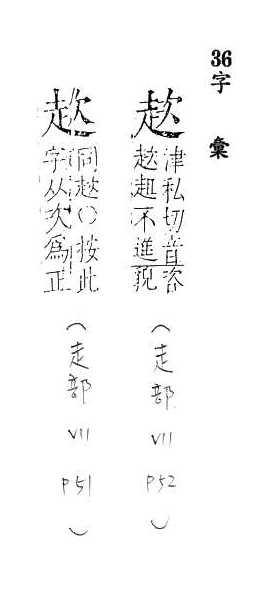 36字彙
趑
津私切音咨
趑趄不進皃
(走部 VII P52)
趑
同趑〇按此
字从次爲正
(走部 VII P51)